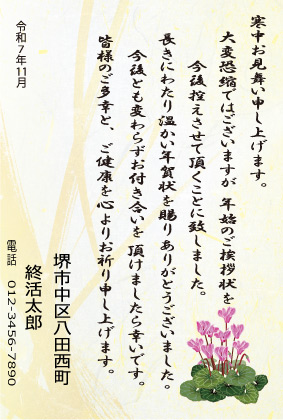 寒中お見舞い申し上げます。
大変恐縮ではございますが 年始のご挨拶状を
今後控えさせて頂くことに致しました。
長きにわたり温かい年賀状を賜りありがとうございました。
今後とも変わらずお付き合いを 頂けましたら幸いです。
皆様のご多幸と、ご健康を心よりお祈り申し上げます。
令和7年11月
堺市中区八田西町
終活太郎
電話 012-3456-7890